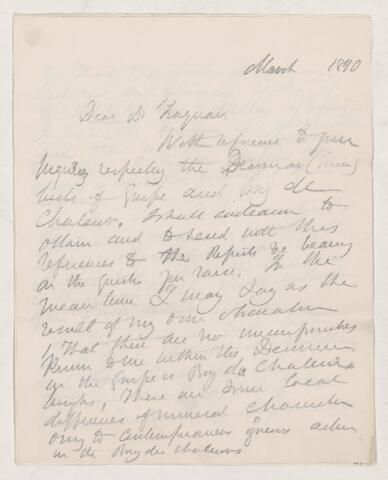 March 1890
Dear Dr
With reference to your
inquiry respecting the Devonian
beds of Gaspe and Bay de
Chaleur. I shall endeavour to
obtain and to send with this
references to the Reports &c bearing
on the you raise. In the
mean time I may say as the
result of my own
1. That there are no unconformities
known to me within the Devonian
in the Gaspe or Bay de Chaleur
There are some local
differences of mineral character
owing to contemporaneous igneous action
in the Bay des Chaleurs